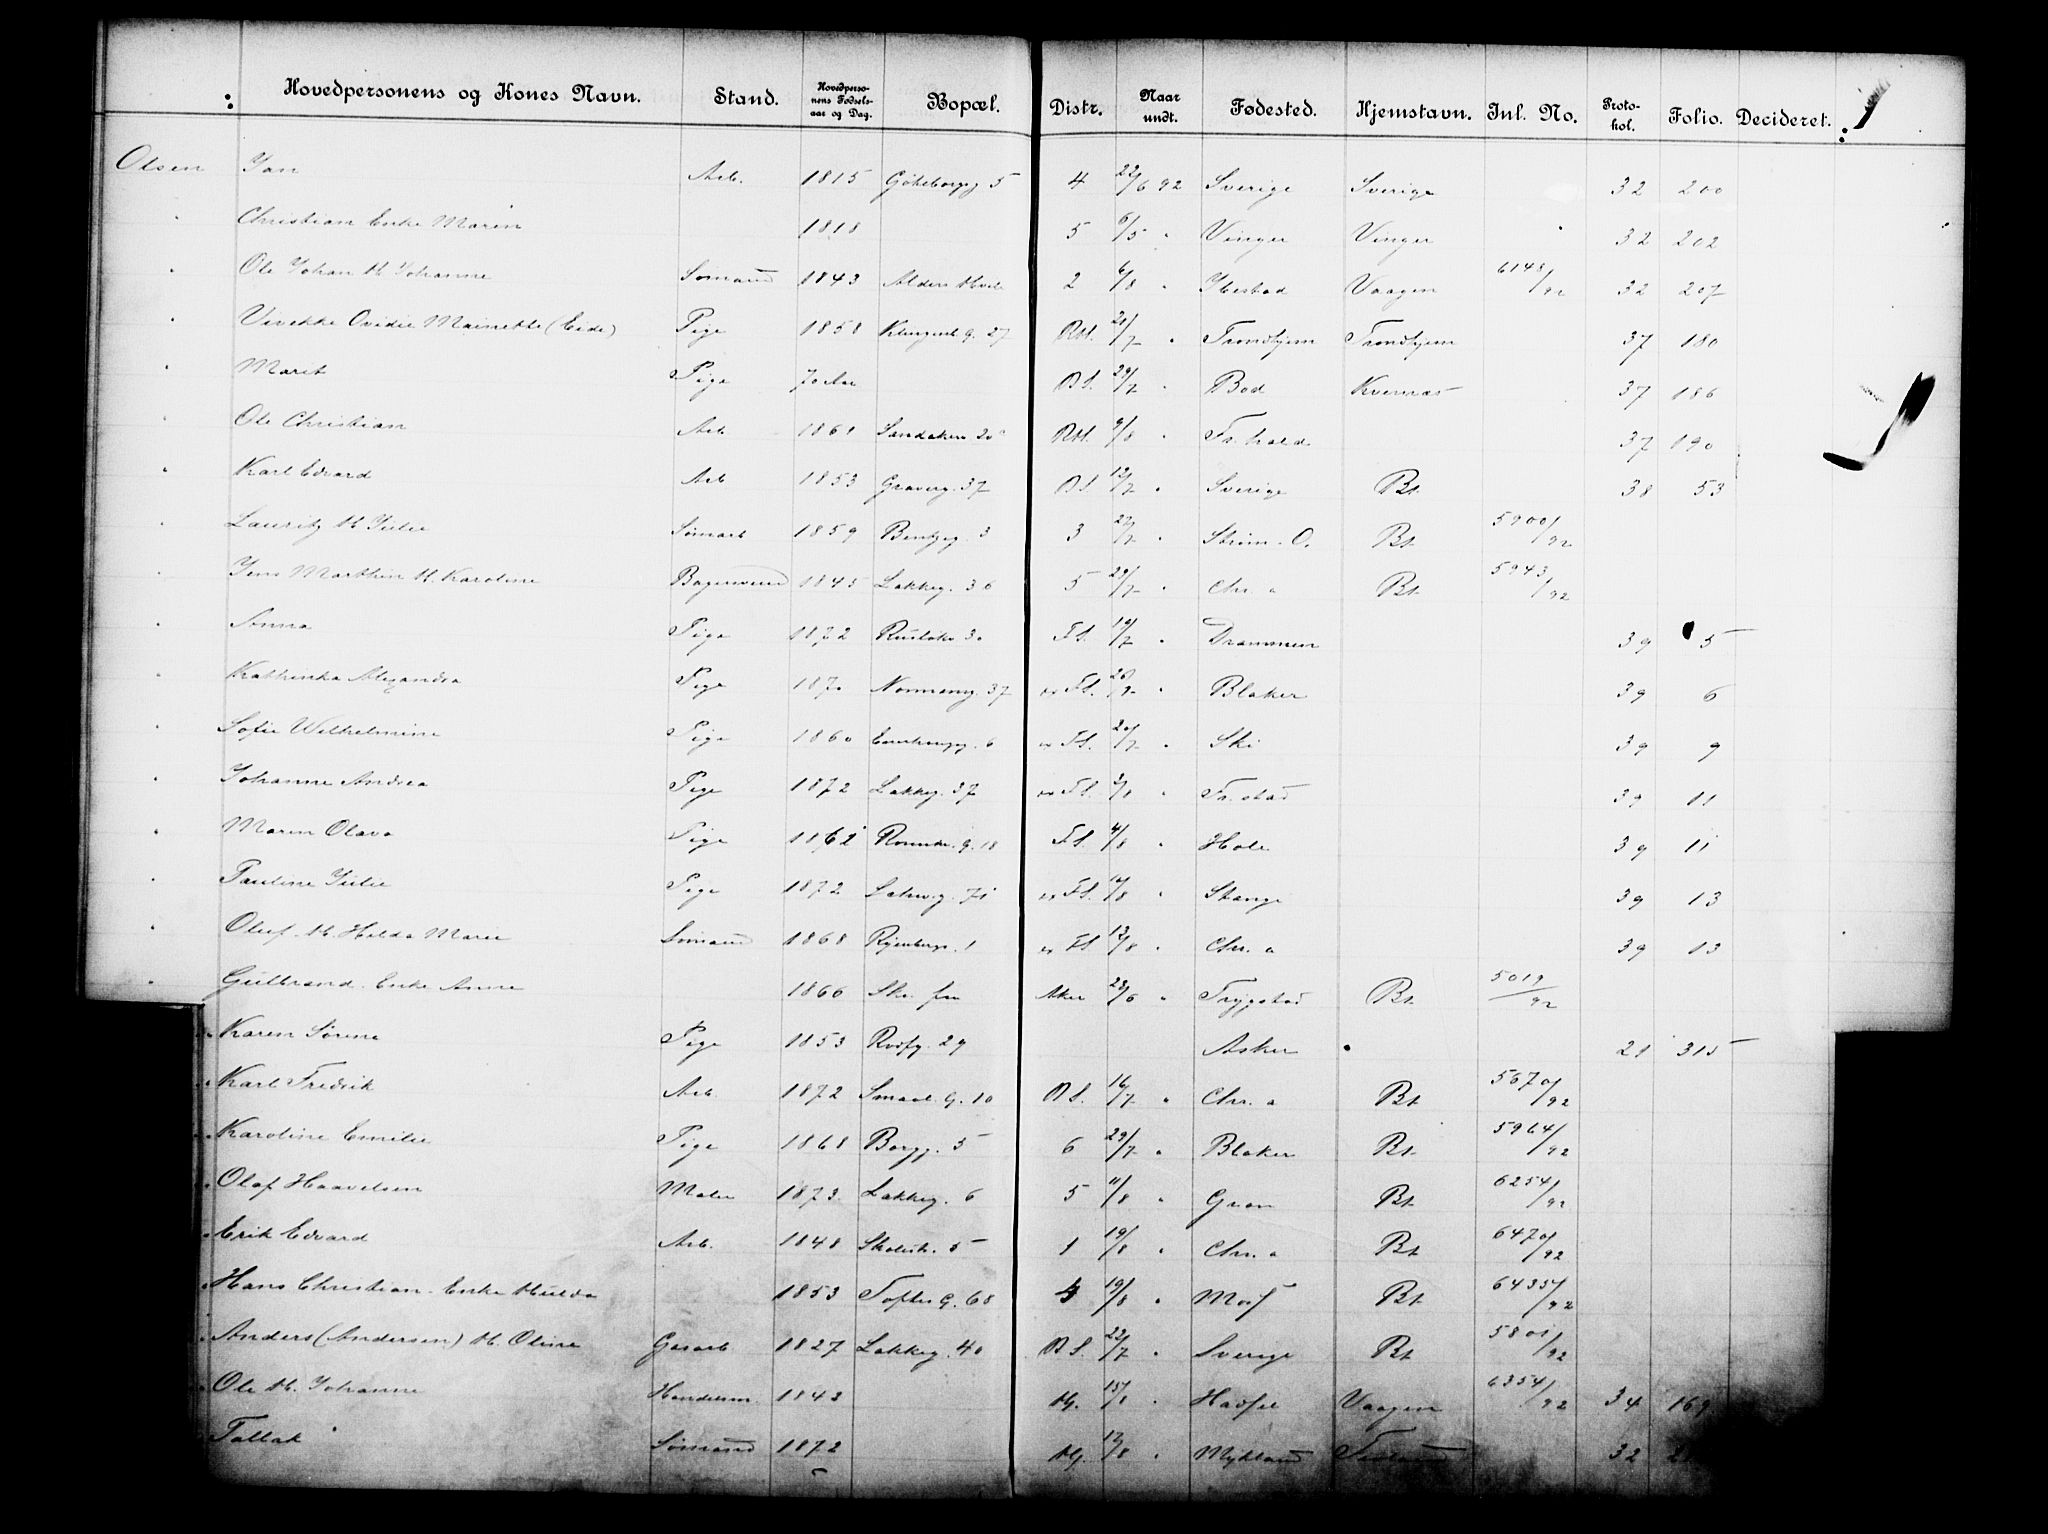 Hovedpersonens og Kones Navn. Stand. Hovedpersonens Fødselsaar og Dag. Bopæl. Distr. Naar undt. Fødested. Hjemstavn. Inl. No. Protokol. Folio. Decideret.
Olsen Jan Arb. 1815 Göteborgg 5 4 22/6 92 Sverige Sverige 32 200
" Christian Enke Maren 1818 5 6/5 " Vinger Vinger 32 202
" Ole Johan H. Johanne Sømand 1843 Alders Hvile 2 6/8 " Ibestad Vaagen 6148/92 32 207
" Vivekke Ovidie Mainette (Eide) Pige 1858 Klingenb. g. 27 RH. 21/7 " Trondhjem Trondhjem 37 180
" Marit Pige 70 Aar BS. 29/7 " Bod Kvernæs 37 186
" Ole Christian Arb 1861 Sandakerv. 20 RH. 9/8 " Fr.hald 37 190
" Karl Edvard Arb 1853 Graverg. 37 BS 12/7 " Sverige Bt. 38 53
" Lauritz H. Julie Sømarb 1859 Bentzeg. 3 3 27/7 " Strøm - O. Bt 5900/92
" Jens Marthin H. Karoline Bagersvend 1845 Lakkeg. 36 5 29/7 " Chr. a Bt 5943/92
" Anna Pige 1872 Ruseløkv 30 FS. 19/7 " Drammen 39 5
" Kathinka Alexandra Pige 1870 Normannsg. 37 FS. 20/7 " Blaker 39 6
" Sofie Wilhelmine Pige 1860 6 FS. 20/7 " Ski 39 9
" Johanne Andrea Pige 1872 Lakkeg. 37 FS. 2/8 " Fr.stad 39 11
" Maren Olava Pige 1862 g. 18 FS. 4/8 " Hole 39 11
" Pauline Julie Pige 1872 71 FS. 12/8 " Stange 39 13
" Oluf - H. Hilda Marie Sømand 1868 Ryenbergv. 1 FS 12/8 " Chr. a 39 13
" Gulbrand. Enke Anne 1866 Aker 28/6 " Trygstad Bt 5019/92
" Karen Sørine Pige 1853 Rosfg. 29 Asker 21 315
" Karl Fredrik Arb. 1872 Smaal. G. 10 BS. 16/7 " Chr. a Bt 5670/92
" Karoline Emilie Pige 1868 Borgg. 5 6 29/7 " Blaker Bt 5964/92
" Olaf Haavelsen Maler 1873 Lakkeg. 6 5 11/8 " Gran Bt 6254/92
" Erik Edvard Arb. 1848 Skolestr. 5 1 19/8 " Chr. a Bt 6470/92
" Hans Christian - Enke Hulda 1853 Toftes G. 68 19/8 " Moss Bt 6435/92
" Anders (Andersen) H. Oline Gasarb 1827 Lakkeg. 40 BS. 22/7 " Sverige Bt 5801/92
" Ole H. Johanne Handelsm. 1843 Hg. 15/8 " Hadsel Vaagen 6354/92 34 169
" Tallak Sømand 1872 Hg. 17/8 " Mykland 32